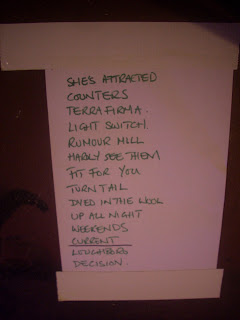 SHE'S ATTRACTED
COUNTERS
TERRA FIRMA.
LIGHT SWITCH.
RUMOUR MILL
HARDLY SEE THEM
FIT FOR YOU
TURN TAIL
DYED IN THE WOOL
UP ALL NIGHT
WEEKENDS
CURRENT
DECISION.